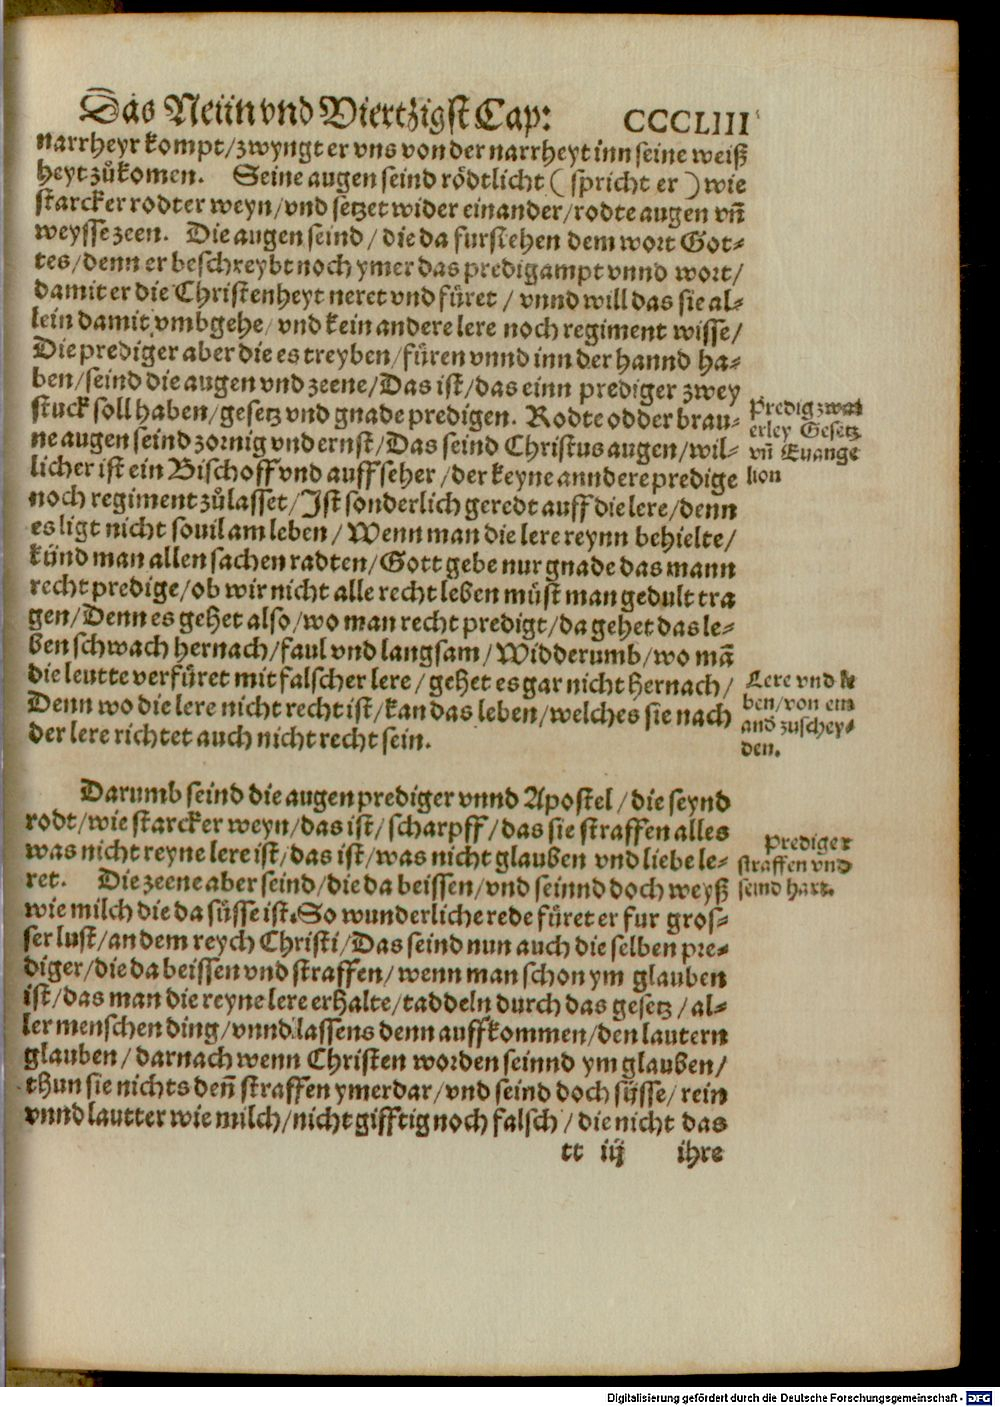 Das Neün vnd Viertzigst Cap: CCCLIII
narrheyr kompt/zwyngt er vns von der narrheyt inn seine weiß
heyt zůkomen. Seine augen seind rödtlicht (spricht er) wie
starcker rodter weyn/vnd setzet wider einander/rodte augen vñ
weysse zeen. Die augen seind/die da furstehen dem wort Got-
tes/denn er beschreybt noch ymer das predigampt vnnd wort/
damit er die Christenheyt neret vnd füret/vnnd will das sie al-
lein damit vmbgehe/vnd kein andere lere noch regiment wisse/
Die prediger aber die es treyben/füren vnnd inn der hannd ha-
ben/seind die augen vnd zeene/Das ist/das einn prediger zwey
stuck soll haben/gesetz vnd gnade predigen. Rodte odder brau-
ne augen seind zornig vnd ernst/Das seind Christus augen/wil-
licher ist ein Bischoff vnd auffseher/der keyne anndere predige
noch regiment zůlasset/Ist sonderlich geredt auff die lere/denn
es ligt nicht souil am leben/Wenn man die lere reynn behielte/
künd man allen sachen radten/Gott gebe nur gnade das mann
recht predige/ob wir nicht alle recht leben müst man gedult tra
gen/Denn es gehet also/wo man recht predigt/da gehet das le-
ben schwach hernach/faul vnd langsam/Widderumb/wo mã
die leutte verfüret mit falscher lere/gehet es gar nicht hernach/
Denn wo die lere nicht recht ist/kan das leben/welches sie nach
der lere richtet auch nicht recht sein.
Predig zwai
erley Gesetz
vñ Euange
lion
Lere vnd le
ben/von ein
and zuschey-
den.
Darumb seind die augen prediger vnnd Apostel/die seynd
rodt/wie starcker weyn/das ist/scharpff/das sie straffen alles
was nicht reyne lere ist/das ist/was nicht glauben vnd liebe le-
ret. Die zeene aber seind/die da beissen/vnd seinnd doch weyß
wie milch die da süsse ist. So wunderliche rede füret er fur gros-
ser lust/an dem reych Christi/Das seind nun auch die selben pre-
diger/die da beissen vnd straffen/wenn man schon ym glauben
ist/das man die reyne lere erhalte/taddeln durch das gesetz/al-
ler menschen ding/vnnd lassens denn auffkommen/den lautern
glauben/darnach wenn Christen worden seinnd ym glauben/
thun sie nichts deñ straffen ymerdar/vnd seind doch süsse/rein
vnnd lautter wie milch/nicht gifftig noch falsch/die nicht das
Prediger
straffen vnd
seind hart.
tt iij ihre
Digitalisierung gefördert durch die Deutsche Forschungsgemeinschaft - DFG